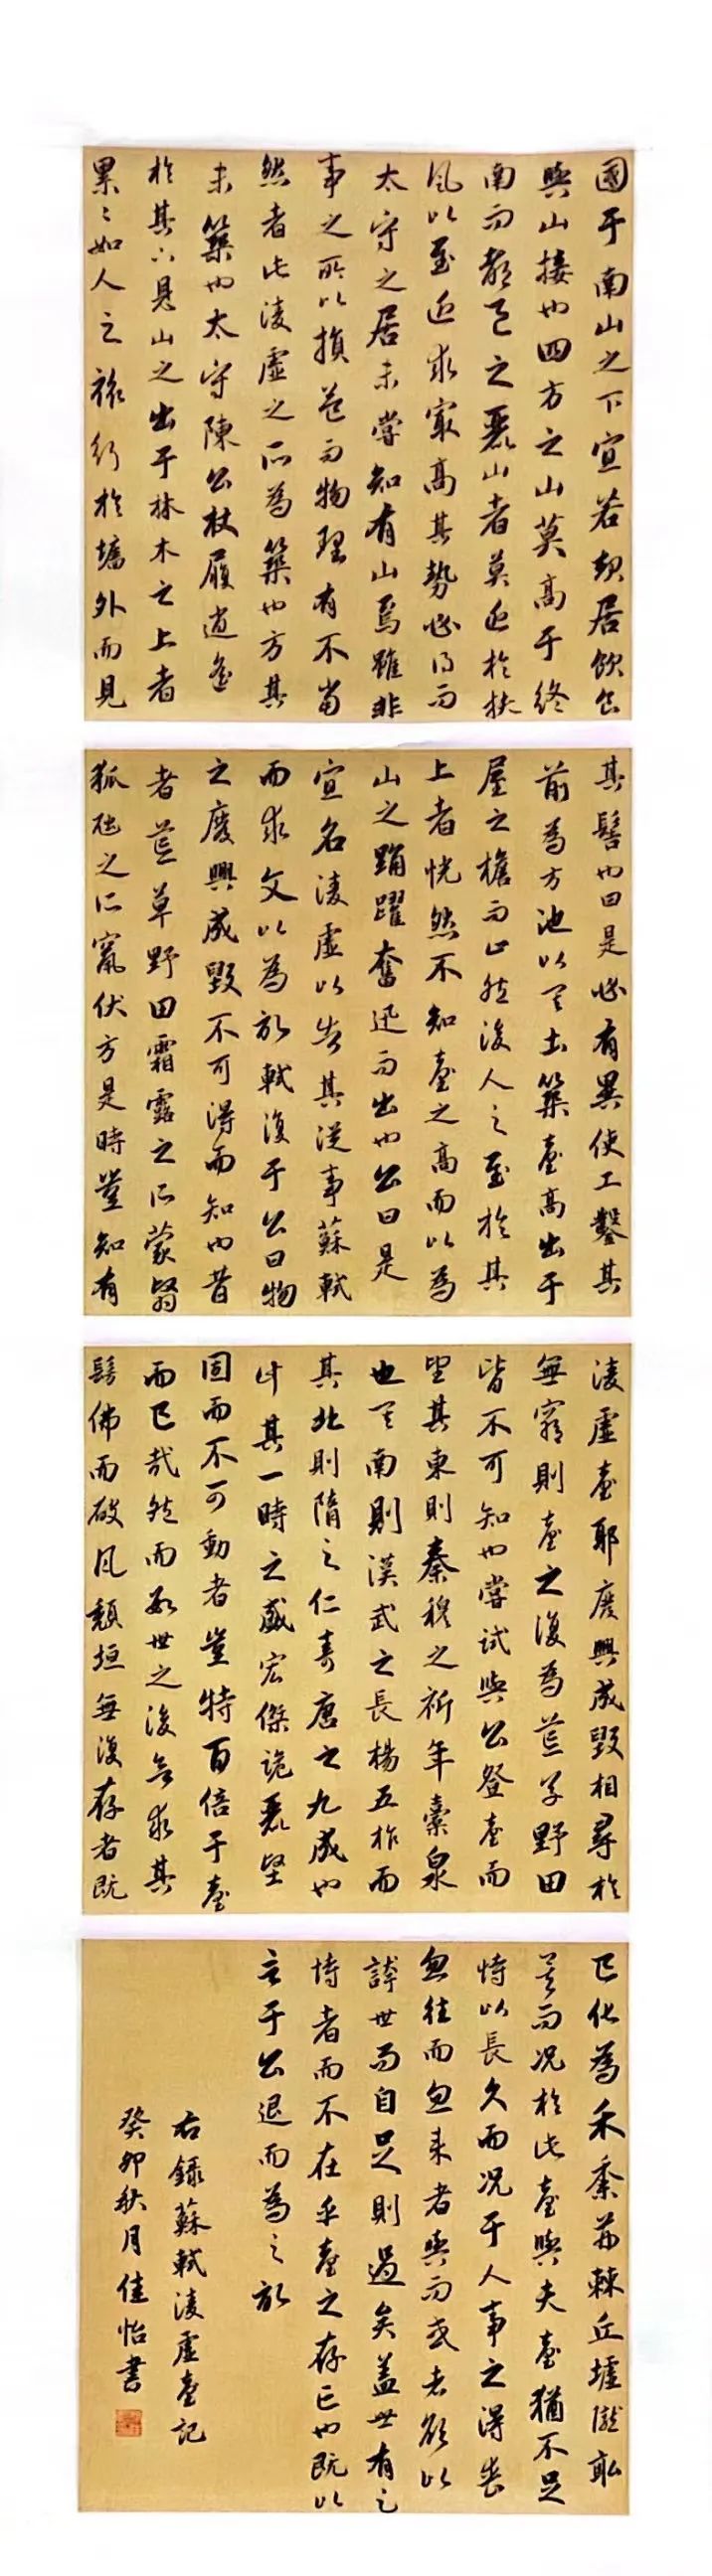 國于南山之下宜若起居飲食
與山接也四方之山莫高于終
南而都邑之麗山者莫近於扶
風以至近求最高其勢必得而
太守之居未嘗知有山焉雖非
事之所以損益而物理有不當
然者此淩虛之所為築也方其
未築也太守陳公杖履逍遙
於其下見山之出于林木之上者
累〻如人之旅行於墻外而見
其髻也曰是必有異使工鑿其
前為方池以其土築臺高出于
屋之檐而止然後人之至於其
上者恍然不知臺之高而以為
山之踊躍奮迅而出也公曰是
宜名淩虛以告其從事蘇軾
而求文以為記軾復于公曰物
之廢興成毀不可得而知也昔
者荒草野田霜露之所蒙翳
狐虺之所竄伏方是時豈知有
淩虛臺耶廢興成毀相尋於
無窮則臺之復為荒草野田
皆不可知也嘗試與公登臺而
望其東則秦穆之祈年橐泉
也其南則漢武之長楊五柞而
其北則隋之仁壽唐之九成也
計其一時之盛宏傑詭麗堅
固而不可動者豈特百倍于臺
而已哉然而數世之後欲求其
髣佛而破瓦頹垣無復存者既
已化為禾黍荊棘丘墟隴畝
矣而況於此臺與夫臺猶不足
恃以長久而況于人事之得喪
忽往而忽來者與而或者欲以
誇世而自足則過矣蓋世有足
恃者而不在乎臺之存亡也既以
言于公退而為之記
右錄蘇軾淩虛臺記
癸卯秋月佳怡書